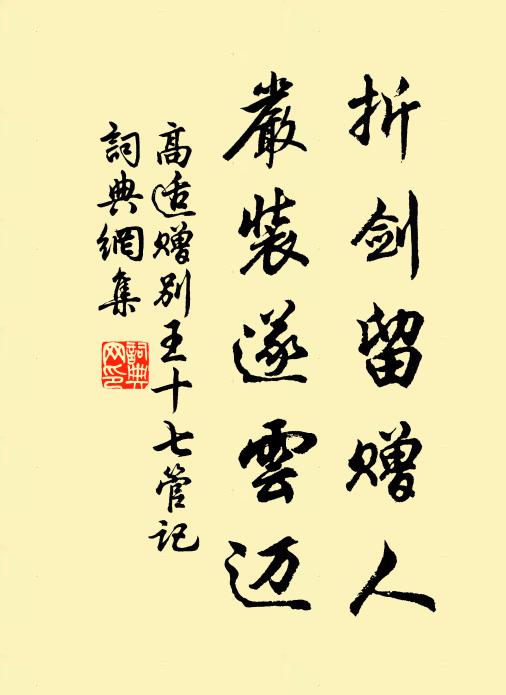 折剑留赠人
嚴裝遂雲迈
高适赠别王十七管记
詞典網集
詞典網印